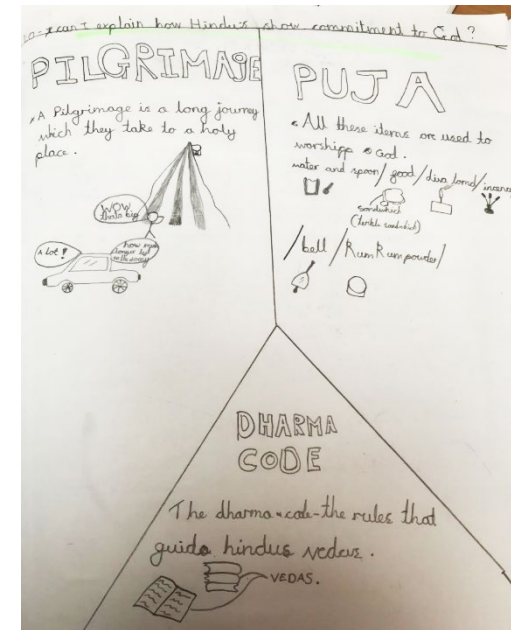 LO- I can I explain how Hindu's show commitment to God?
PILGRIMAGE
A Pilgrimage is a long journey
which they take to a holy
place.
WOW
thats big
A lot!
how
longer
PUJA
All these items are used to
worshipp God.
water and spoon/ food/ diva lamd/ incence
sandwhich
/ bell / Rum Rum powder/
DHARMA
CODE
The dharma code-the rules that
guide hindus vedas.
VEDAS.